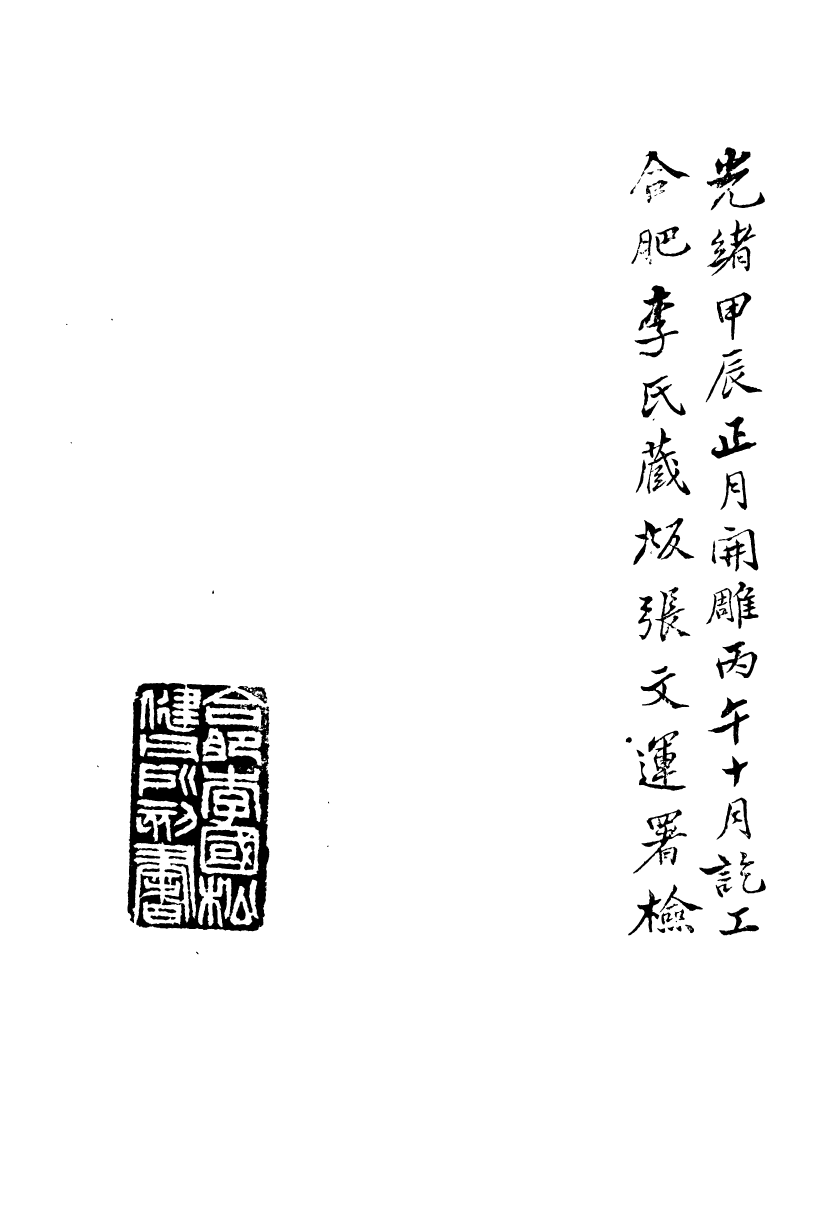 光緒甲辰正月開雕丙午十月訖工
合肥李氏藏版張文運署檢
合肥李國松
健父所刻書